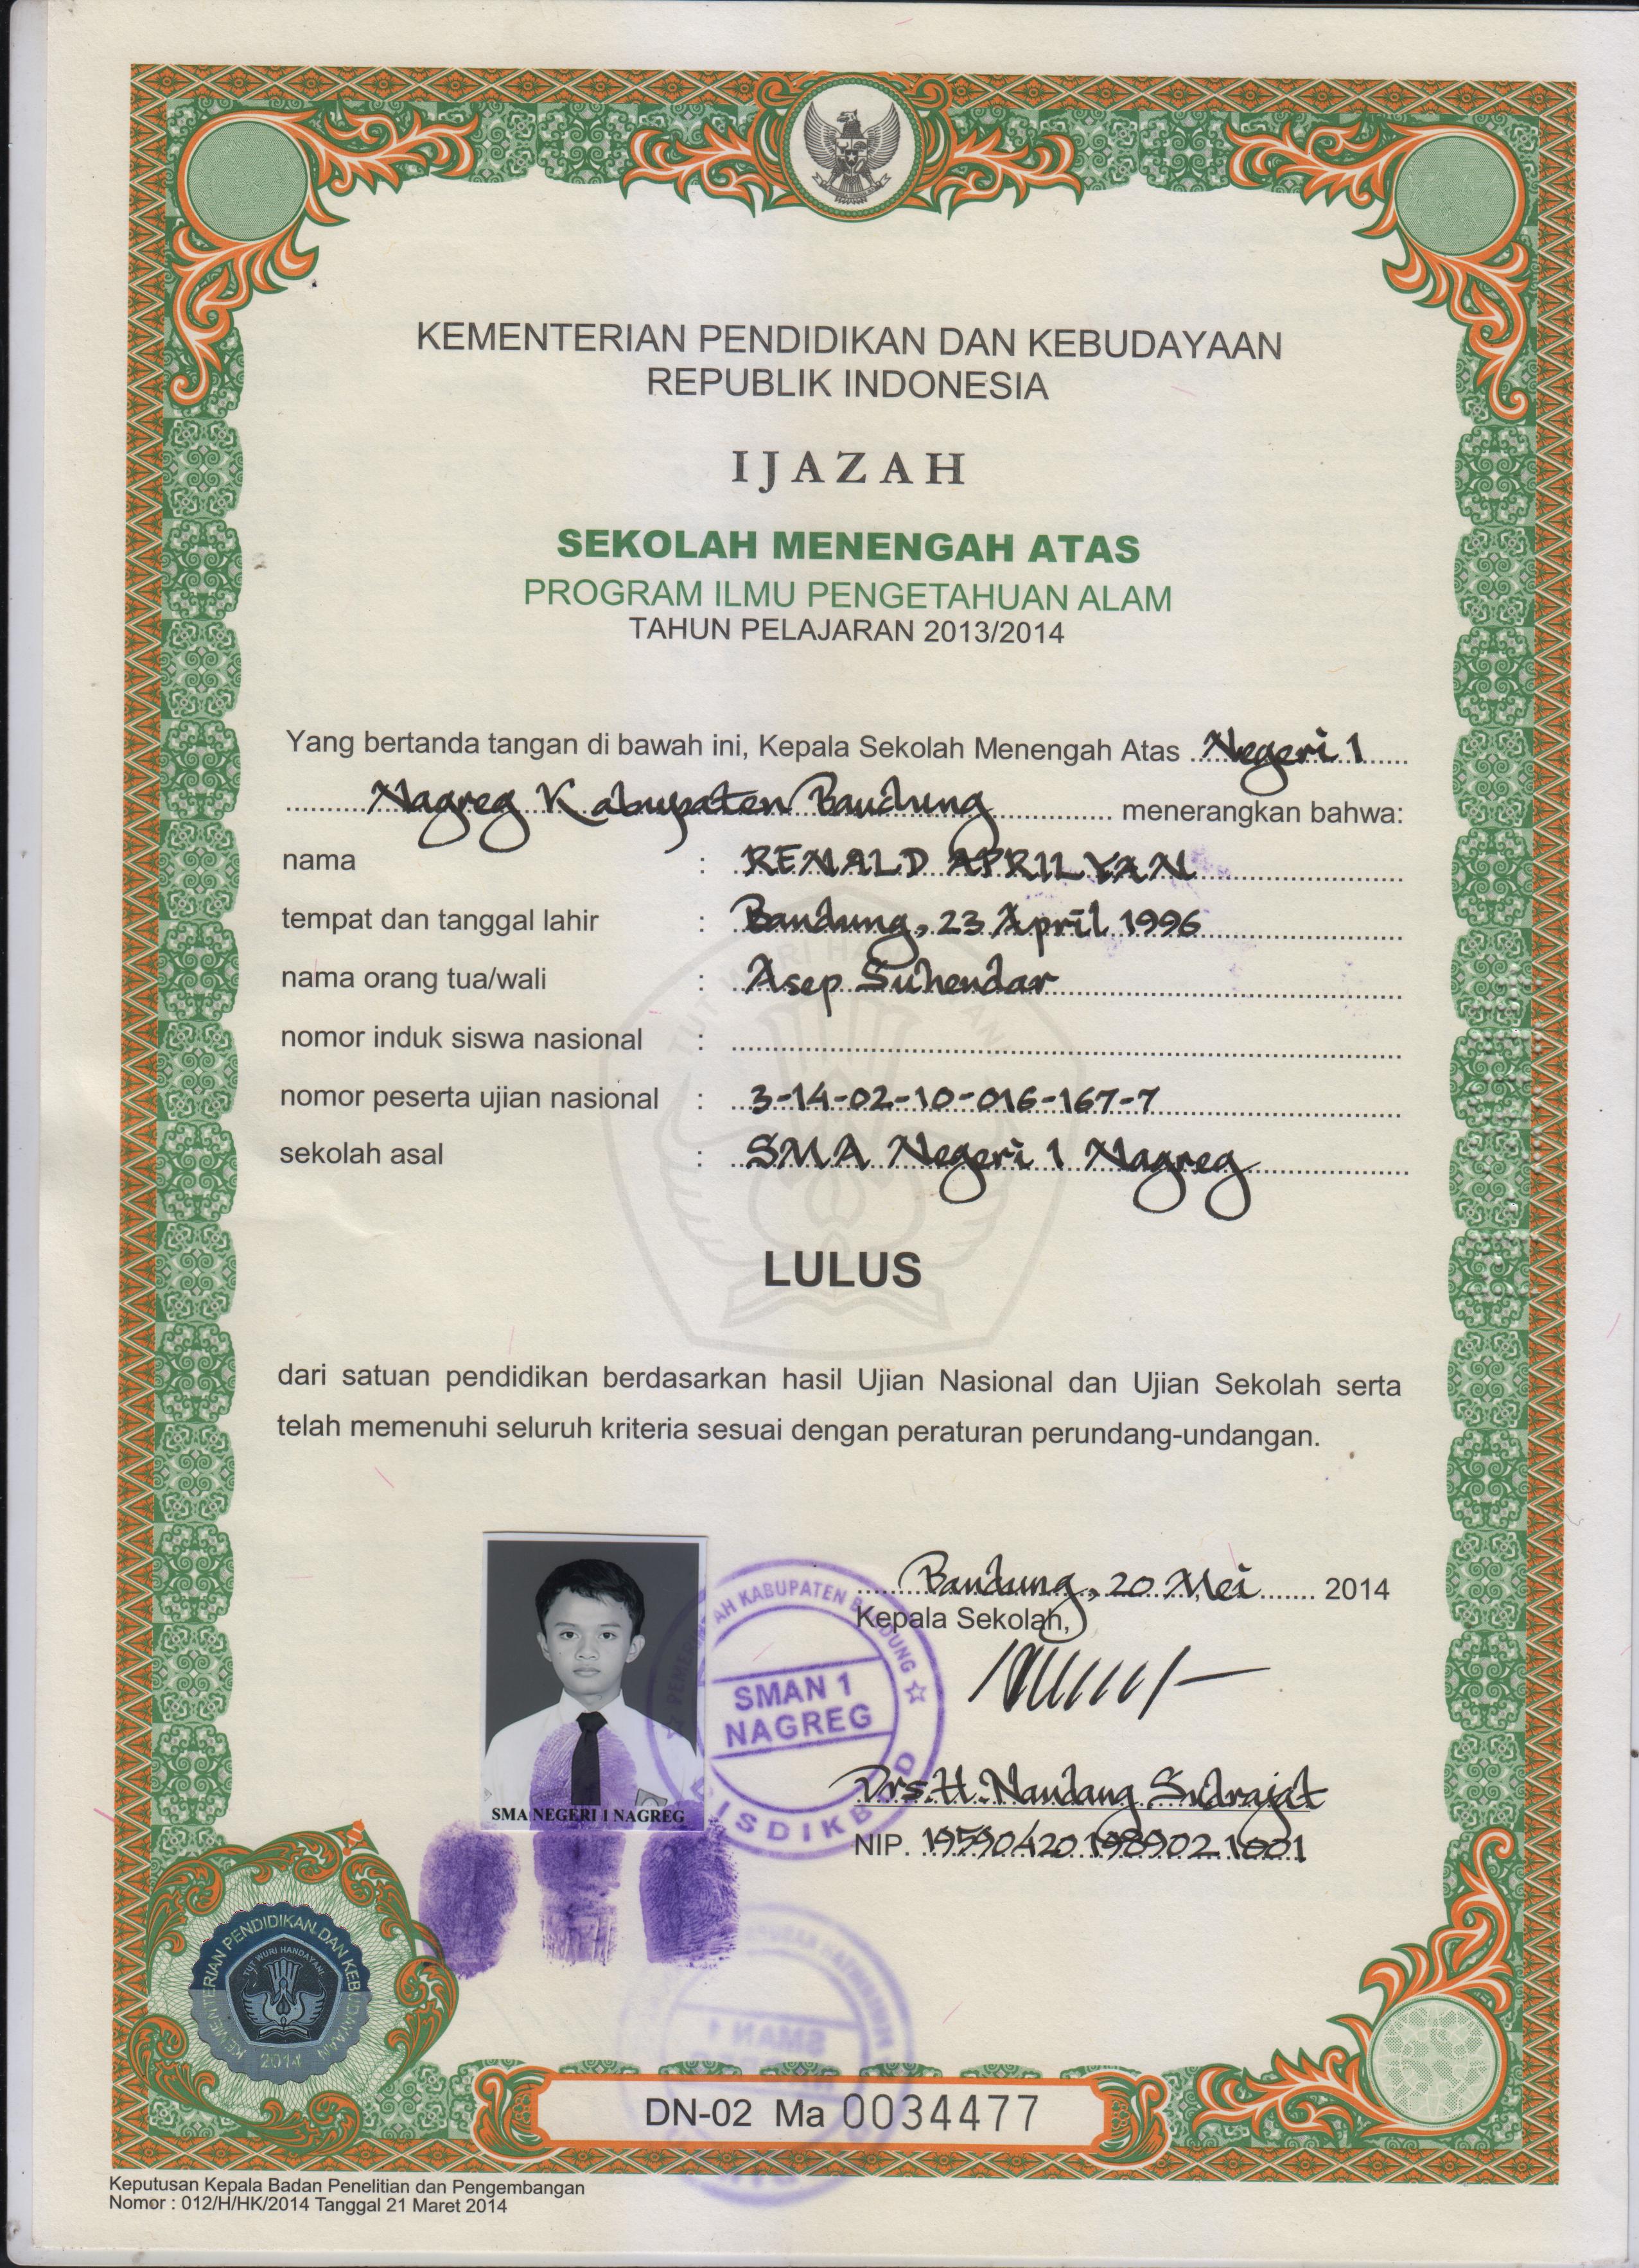 KEMENTERIAN PENDIDIKAN DAN KEBUDAYAAN
REPUBLIK INDONESIA
IJAZAH
SEKOLAH MENENGAH ATAS
PROGRAM ILMU PENGETAHUAN ALAM
TAHUN PELAJARAN 2013/2014
Yang bertanda tangan di bawah ini, Kepala Sekolah Menengah Atas Negeri 1
Nagreg Kabupaten Bandung menerangkan bahwa:
nama : RENALD APRILYAN
tempat dan tanggal lahir : Bandung, 23 April 1996
nama orang tua/wali : Asep Suhendar
nomor induk siswa nasional :
nomor peserta ujian nasional : 3-14-02-10-016-167-7
sekolah asal : SMA Negeri 1 Nagreg
TUT WURI HANDAYANI
LULUS
dari satuan pendidikan berdasarkan hasil Ujian Nasional dan Ujian Sekolah serta
telah memenuhi seluruh kriteria sesuai dengan peraturan perundang-undangan.
Bandung, 20 Mei 2014
Kepala Sekolah,
SMAN 1
NAGREG
KABUPATEN BANDUNG
SMA NEGERI 1 NAGREG
Drs. H. Nandang Sudrajat
NIP. 19590420 198902 1 001
KEMENTERIAN PENDIDIKAN DAN KEBUDAYAAN
TUT WURI HANDAYANI
2014
DN-02 Ma 0034477
Keputusan Kepala Badan Penelitian dan Pengembangan
Nomor : 012/H/HK/2014 Tanggal 21 Maret 2014